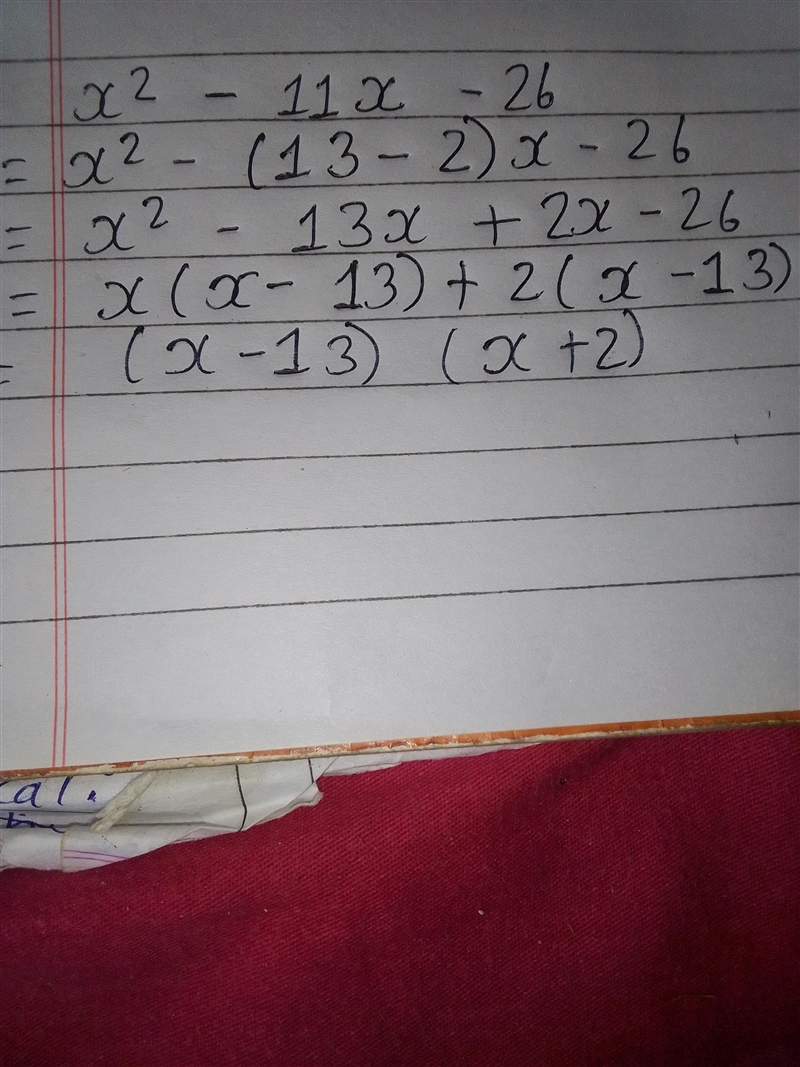 x² - 11x - 26
= x² - (13 - 2)x - 26
= x² - 13x + 2x - 26
= x(x - 13) + 2(x - 13)
= (x - 13) (x + 2)